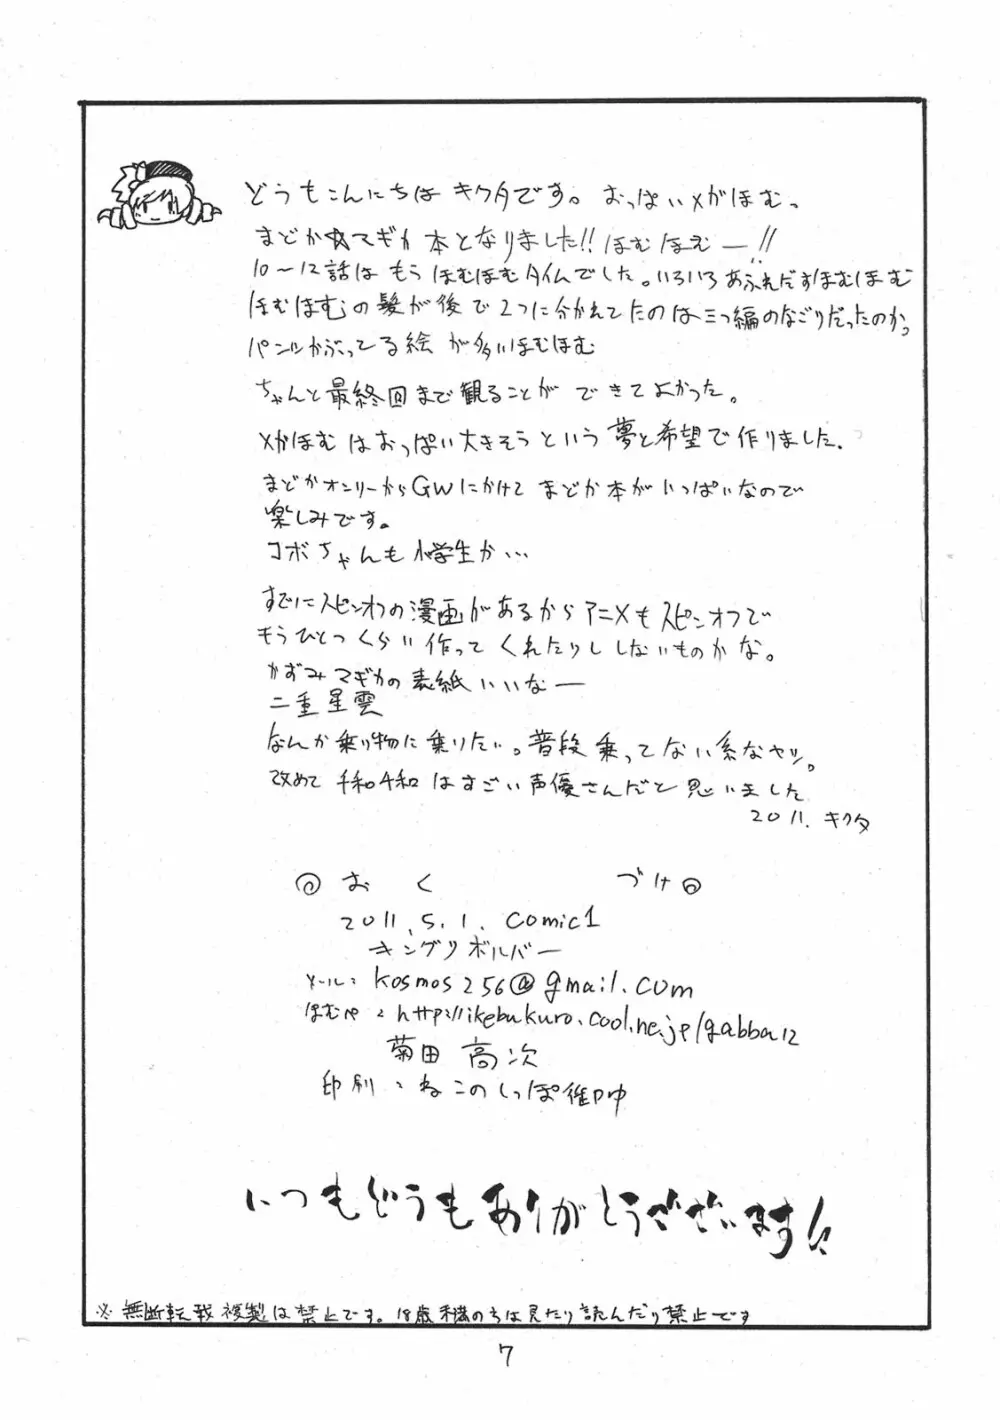 どうもこんにちは キクタです。 おっぱいメがほむっ
まどか☆マギカ 本となりました!! ほむほむー!!
10〜12話は もう ほむほむタイムでした。いろいろあふれだすほむほむ
ほむほむの髪が後で2つに分かれてたのは三つ編のなごりだったのかっ
パンツかぶってる絵 が多いほむほむ
ちゃんと最終回まで観ることが できてよかった。
メがほむ はおっぱい大きそう という 夢と希望で作りました.
まどかオンリーからGWにかけて まどか本がいっぱいなので
楽しみです。
コボちゃんも小学生か…
すでにスピンオフの漫画があるから アニメもスピンオフで
もうひとつくらい作って くれたりしないものかな。
かずみマギカの表紙いいなー
二重星雲
なんか乗り物に乗りたい。普段 乗ってない系なヤツ。
改めて 千和千和 はすごい声優さんだと思いました
2011. キクタ
◎ お く づけ◎
2011.5.1. comic1
キングリボルバー
メール: kosmos256@gmail.com
ほむぺ: http://ikebukuro.cool.ne.jp/gabba12
菊田 高次
印刷: ねこのしっぽ様
いつもどうもありがとうございます!!
※ 無断転載複製は禁止です。18歳未満の方は見たり読んだり禁止です
7